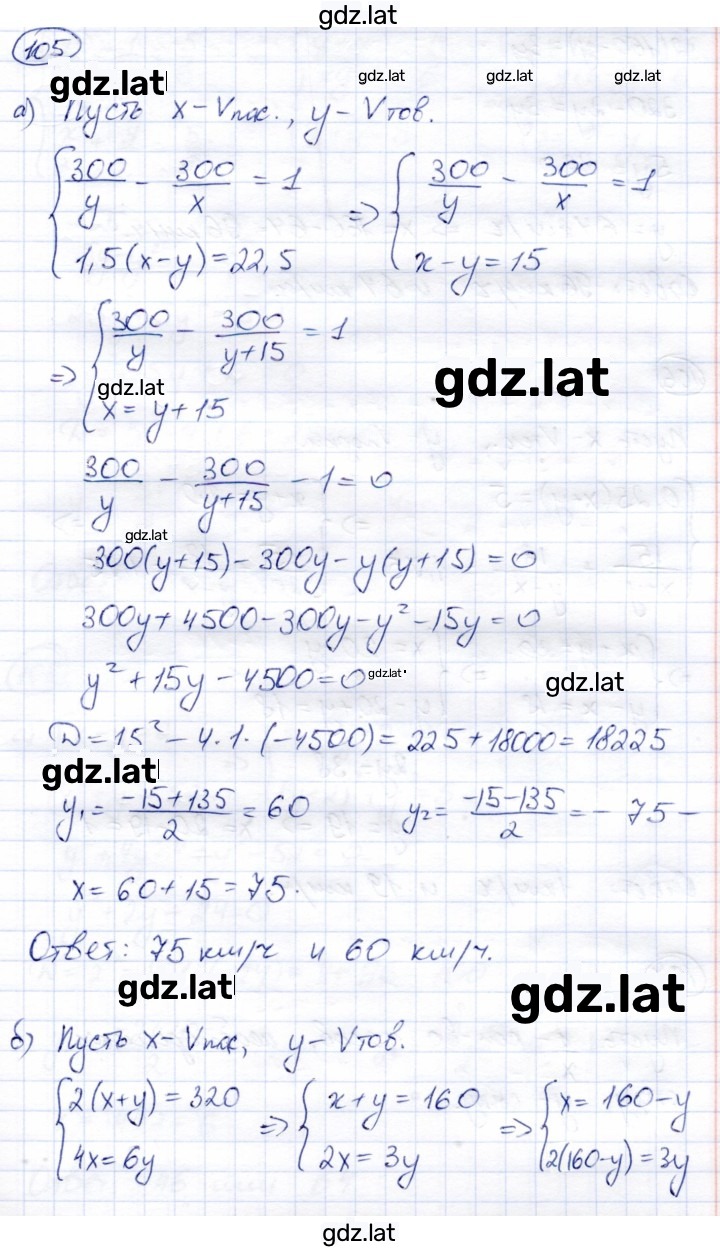 gdz.lat
105
gdz.lat gdz.lat gdz.lat gdz.lat
а) Пусть x – Vпас., y – Vтов.
{ 300/y – 300/x = 1 => { 300/y – 300/x = 1
1,5(x–y)=22,5 x–y=15
=> { 300/y – 300/(y+15) = 1
gdz.lat
gdz.lat
x= y+15
300/y – 300/(y+15) – 1 = 0
gdz.lat
300(y+15) – 300y – y(y+15) = 0
300y + 4500 – 300y – y² – 15y = 0
y² + 15y – 4500 = 0 gdz.lat
gdz.lat
D = 15² – 4·1·(–4500) = 225 + 18000 = 18225
gdz.lat
y₁ = (–15+135)/2 = 60 y₂ = (–15–135)/2 = –75 –
x = 60 + 15 = 75.
Ответ: 75 км/ч и 60 км/ч.
gdz.lat gdz.lat
б) Пусть x – Vпас, y – Vтов.
{ 2(x+y) = 320 => { x+y = 160 => { x = 160–y
4x = 6y 2x = 3y 2(160–y) = 3y
gdz.lat